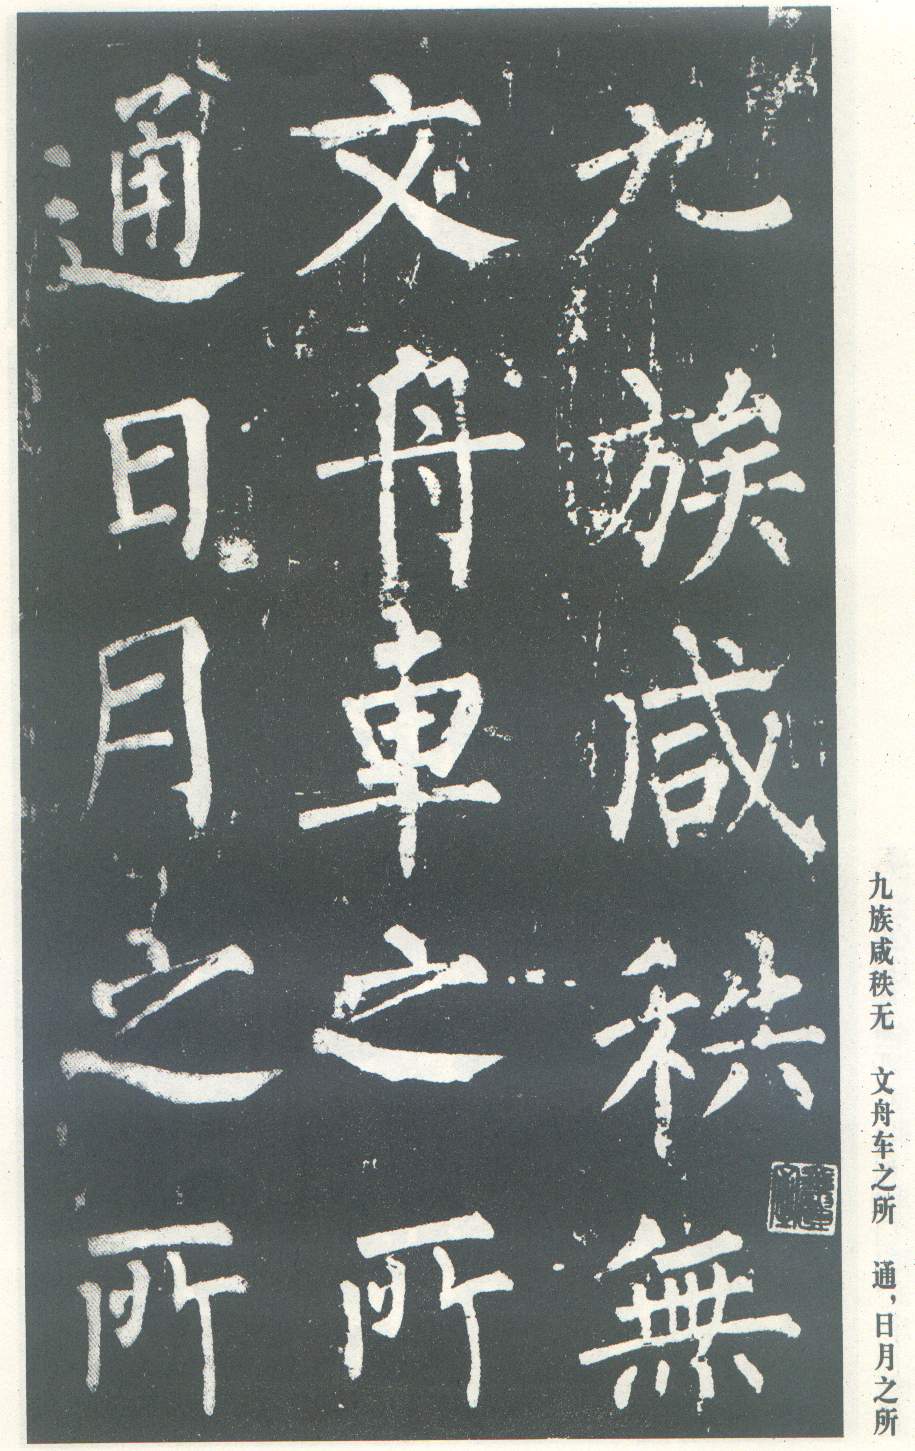 九族咸秩無
文舟車之所
通日月之所
九族咸秩无 文舟车之所 通，日月之所